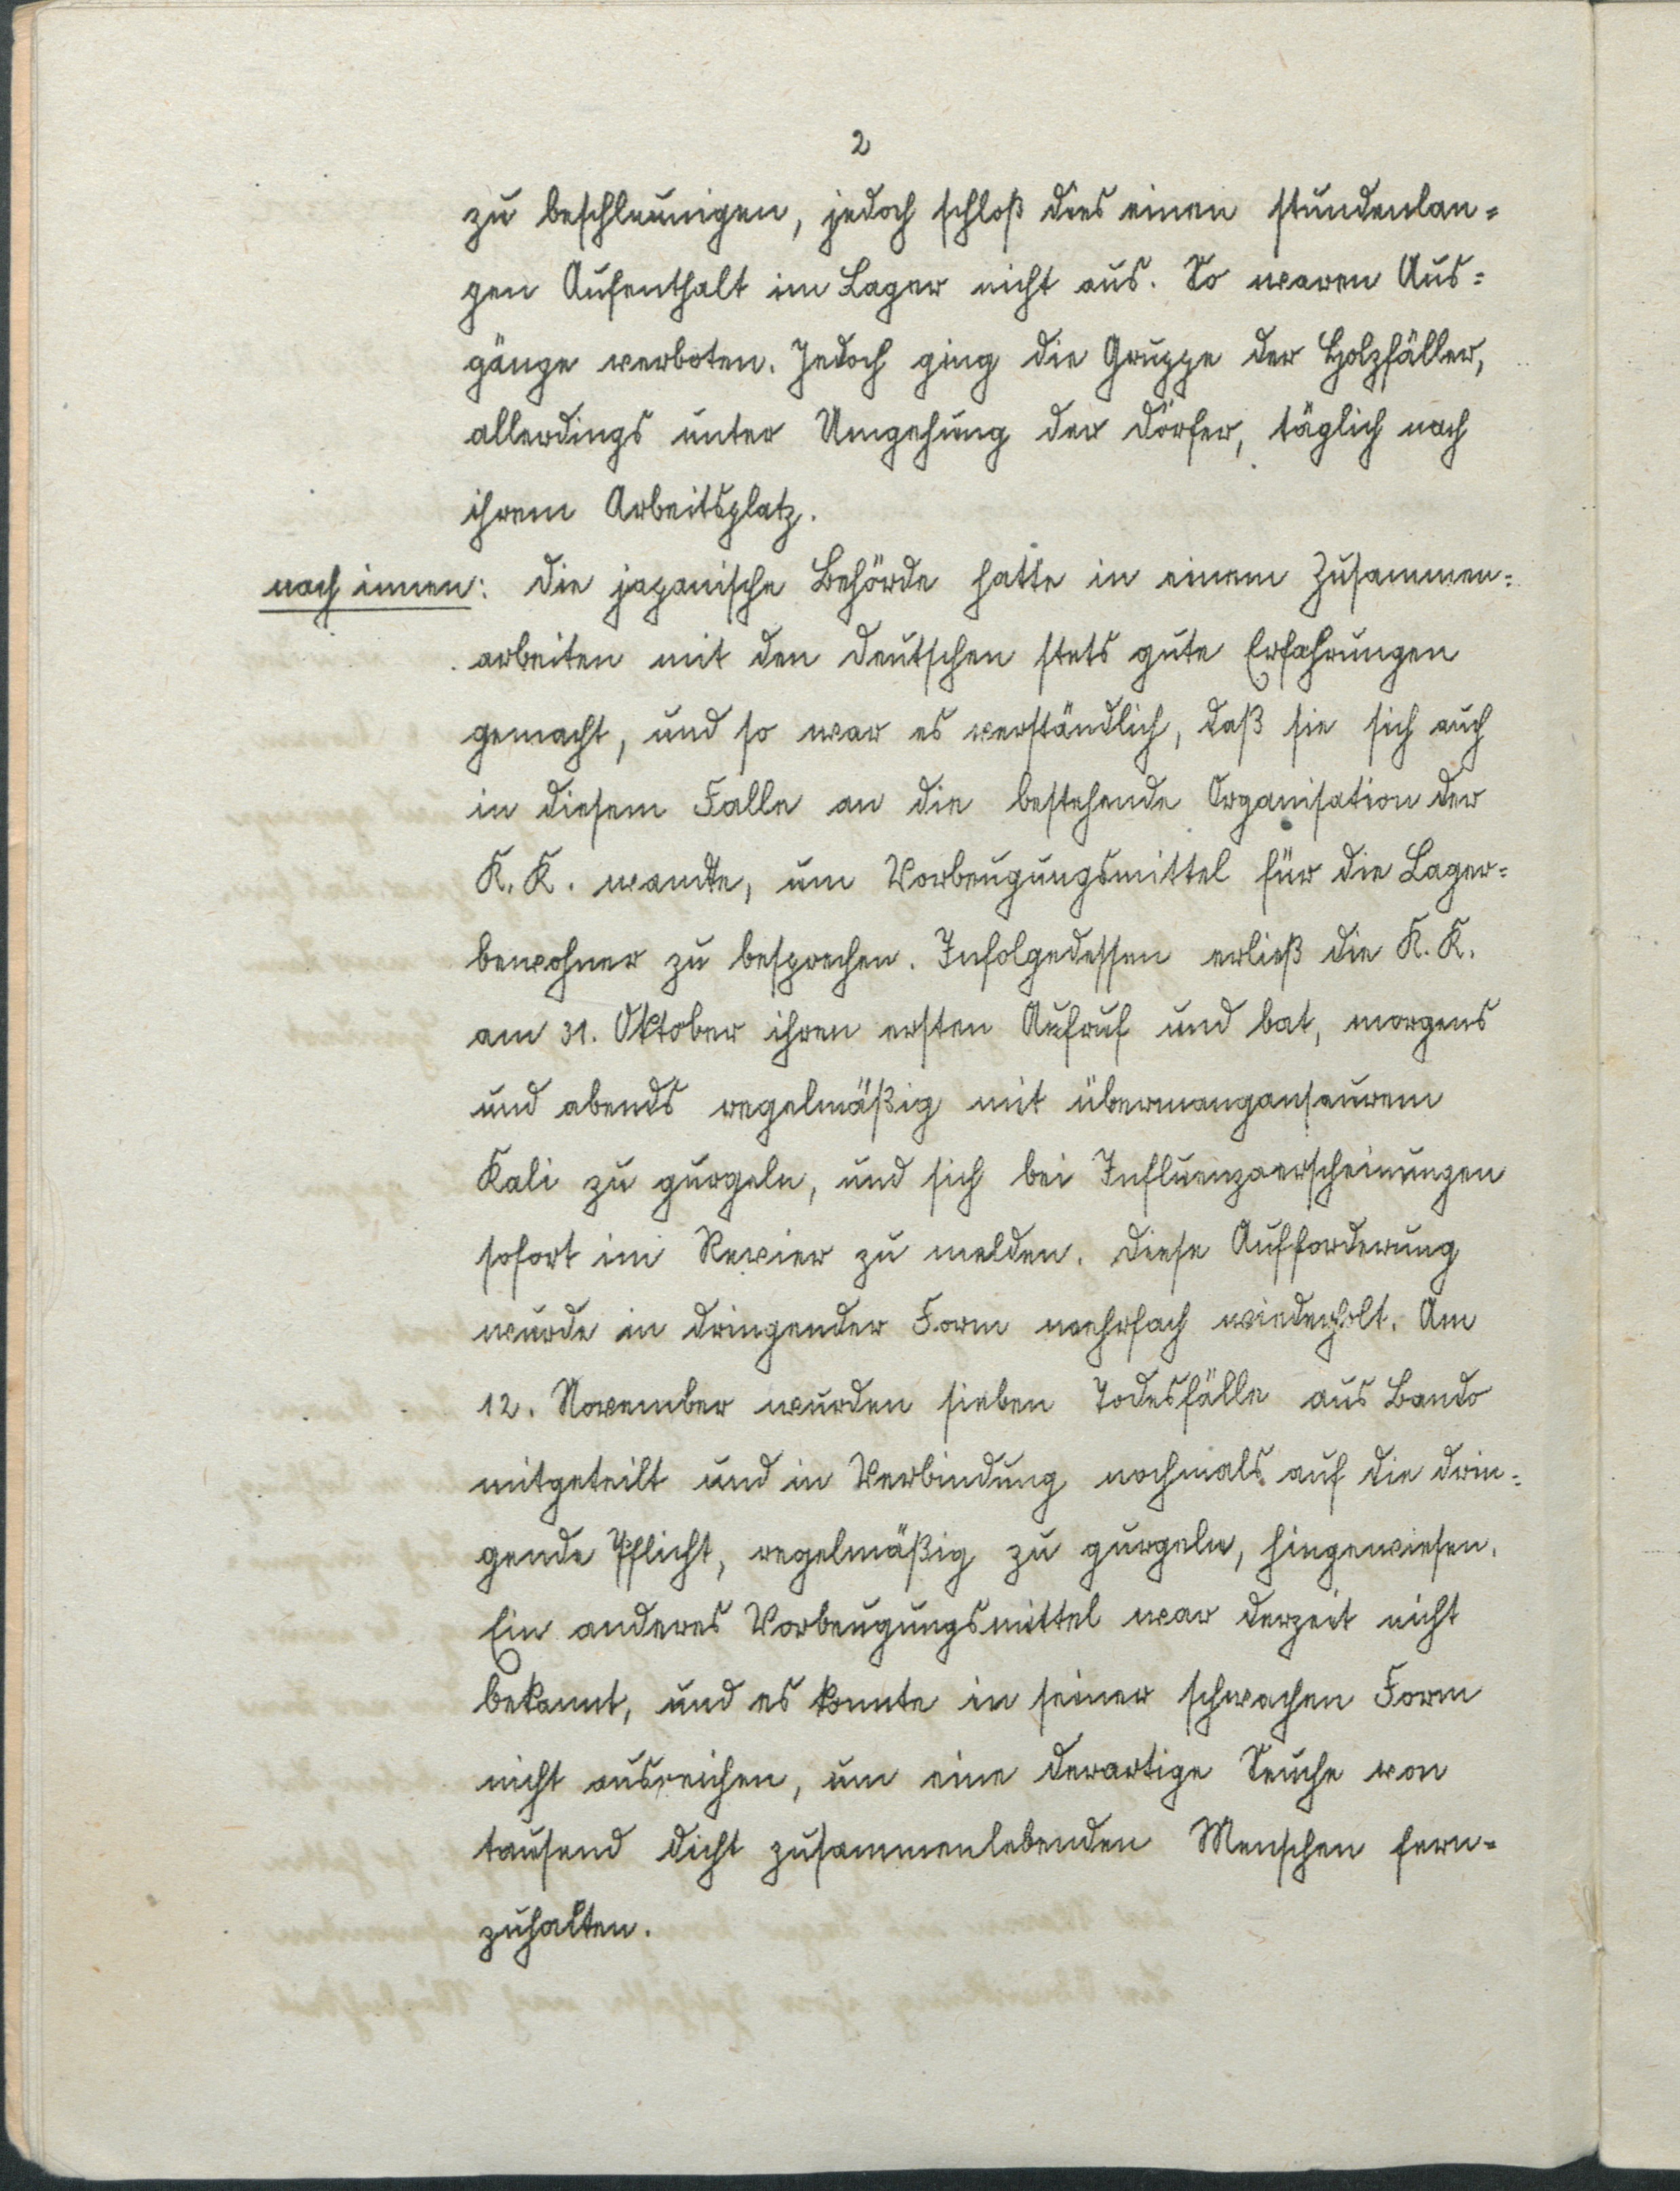 2
zu beschleunigen, jedoch schloß dies einen stundenlan=
gen Aufenthalt im Lager nicht aus. So waren Aus=
gänge verboten. Jedoch ging die Gruppe der Holzfäller,
allerdings unter Umgehung der Dörfer, täglich nach
ihrem Arbeitsplatz.
nach innen: Die japanische Behörde hatte in einem Zusammen=
arbeiten mit den Deutschen stets gute Erfahrungen
gemacht, und so war es verständlich, daß sie sich auch
in diesem Falle an die bestehende Organisation der
K. K. wandte, um Vorbeugungsmittel für die Lager=
bewohner zu besprechen. Infolgedessen erließ die K. K.
am 31. Oktober ihren ersten Aufruf und bat, morgens
und abends regelmäßig mit übermangansaurem
Kali zu gurgeln, und sich bei Influenzaerscheinungen
sofort im Revier zu melden. Diese Aufforderung
wurde in dringender Form mehrfach wiederholt. Am
12. November wurden sieben Todesfälle aus Bando
mitgeteilt und in Verbindung nochmals auf die drin=
gende Pflicht, regelmäßig zu gurgeln, hingewiesen.
Ein anderes Vorbeugungsmittel war derzeit nicht
bekannt, und es konnte in seiner schwachen Form
nicht ausreichen, um eine derartige Seuche von
tausend dicht zusammenlebenden Menschen fern=
zuhalten.